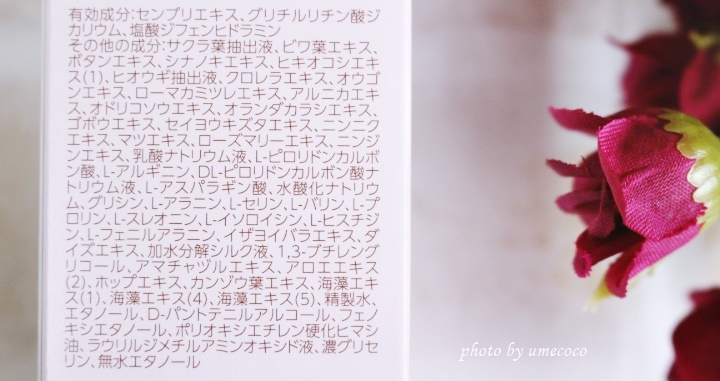 有効成分:センブリエキス、グリチルリチン酸ジ
カリウム、塩酸ジフェンヒドラミン
その他の成分:サクラ葉抽出液、ビワ葉エキス、
ボタンエキス、シナノキエキス、ヒキオコシエキ
ス(1)、ヒオウギ抽出液、クロレラエキス、オウゴ
ンエキス、ローマカミツレエキス、アルニカエキ
ス、オドリコソウエキス、オランダカラシエキス、
ゴボウエキス、セイヨウキズタエキス、ニンニク
エキス、マツエキス、ローズマリーエキス、ニンジ
ンエキス、乳酸ナトリウム液、L-ピロリドンカルボ
ン酸、L-アルギニン、DL-ピロリドンカルボン酸ナ
トリウム液、L-アスパラギン酸、水酸化ナトリウ
ム、グリシン、L-アラニン、L-セリン、L-バリン、L-プ
ロリン、L-スレオニン、L-イソロイシン、L-ヒスチジ
ン、L-フェニルアラニン、イザヨイバラエキス、ダ
イズエキス、加水分解シルク液、1,3-ブチレング
リコール、アマチャヅルエキス、アロエエキス
(2)、ホップエキス、カンゾウ葉エキス、海藻エキ
ス(1)、海藻エキス(4)、海藻エキス(5)、精製水、
エタノール、D-パントテニルアルコール、フェノ
キシエタノール、ポリオキシエチレン硬化ヒマシ
油、ラウリルジメチルアミンオキシド液、濃グリセ
リン、無水エタノール
photo by umecoco